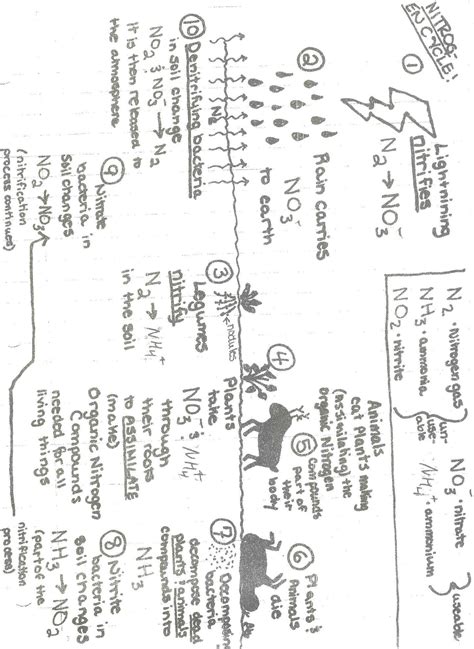 NITROGEN CYCLE!
①
Lightning
nitrifies
N₂ → NO₃⁻
②
Rain carries
NO₃⁻
to earth
N₂ · Nitrogen gas
NH₃ · ammonia
NO₂⁻ · nitrite
} un-
useable
NO₃⁻ · nitrate
NH₄⁺ · ammonium
} useable
③
nodules
Legumes
nitrify
N₂ → NH₄⁺
in the soil
④
Plants
take
NO₃⁻ & NH₄⁺
through
their roots
to ASSIMILATE
(make)
Organic Nitrogen
Compounds
needed for all
living things
Animals
eat plants making
(assimilating) the
organic Nitrogen
⑤ compounds
part of
their
body
⑥ Plants &
Animals
die
⑦ Decomposing
bacteria
decompose dead
plants & animals
compounds into
NH₃
⑧ Nitrite
bacteria in
soil changes
NH₃ → NO₂
(part of the
nitrification
process)
⑨ Nitrate
bacteria in
soil changes
NO₂ → NO₃
(nitrification
process continues)
N₂
⑩ Denitrifying bacteria
in soil change
NO₂⁻ & NO₃⁻ → N₂
It is then released to
the atmosphere